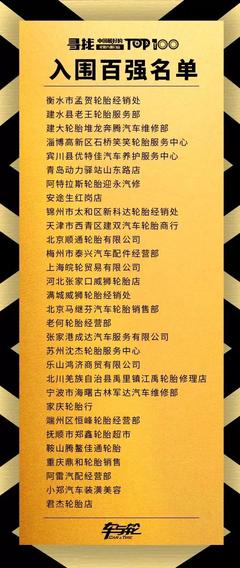 寻找 中国最好的轮胎店 TOP100
入围百强名单
衡水市孟贺轮胎经销处
建水县老王轮胎服务部
建大轮胎堆龙奔腾汽车维修部
淄博高新区石桥笑笑轮胎服务中心
宾川县优特佳汽车养护服务中心
青岛动力驿站山东路店
阿特拉斯轮胎迎永汽修
安途生红岗店
锦州市太和区新科达轮胎经销处
天津市西青区建双汽车轮胎商行
北京顺通轮胎有限公司
梅州市泰兴汽车配件经营部
上海皖轮贸易有限公司
河北张家口威狮轮胎店
满城威狮轮胎经销处
北京马继芬汽车轮胎销售部
老何轮胎经营部
张家港成达汽车服务有限公司
苏州沈杰轮胎服务中心
乐山鸿济商贸有限公司
北川羌族自治县禹里镇江禹轮胎修理店
宁波市海曙古林军达汽车维修部
家庆轮胎行
端州区恒峰轮胎经营部
抚顺市郑鑫轮胎超市
鞍山腾鳌佳通轮胎
重庆鼎和轮胎销售
阿雷汽配经营部
小郑汽车装潢美容
君杰轮胎店
车与轮
CAR & TIRE